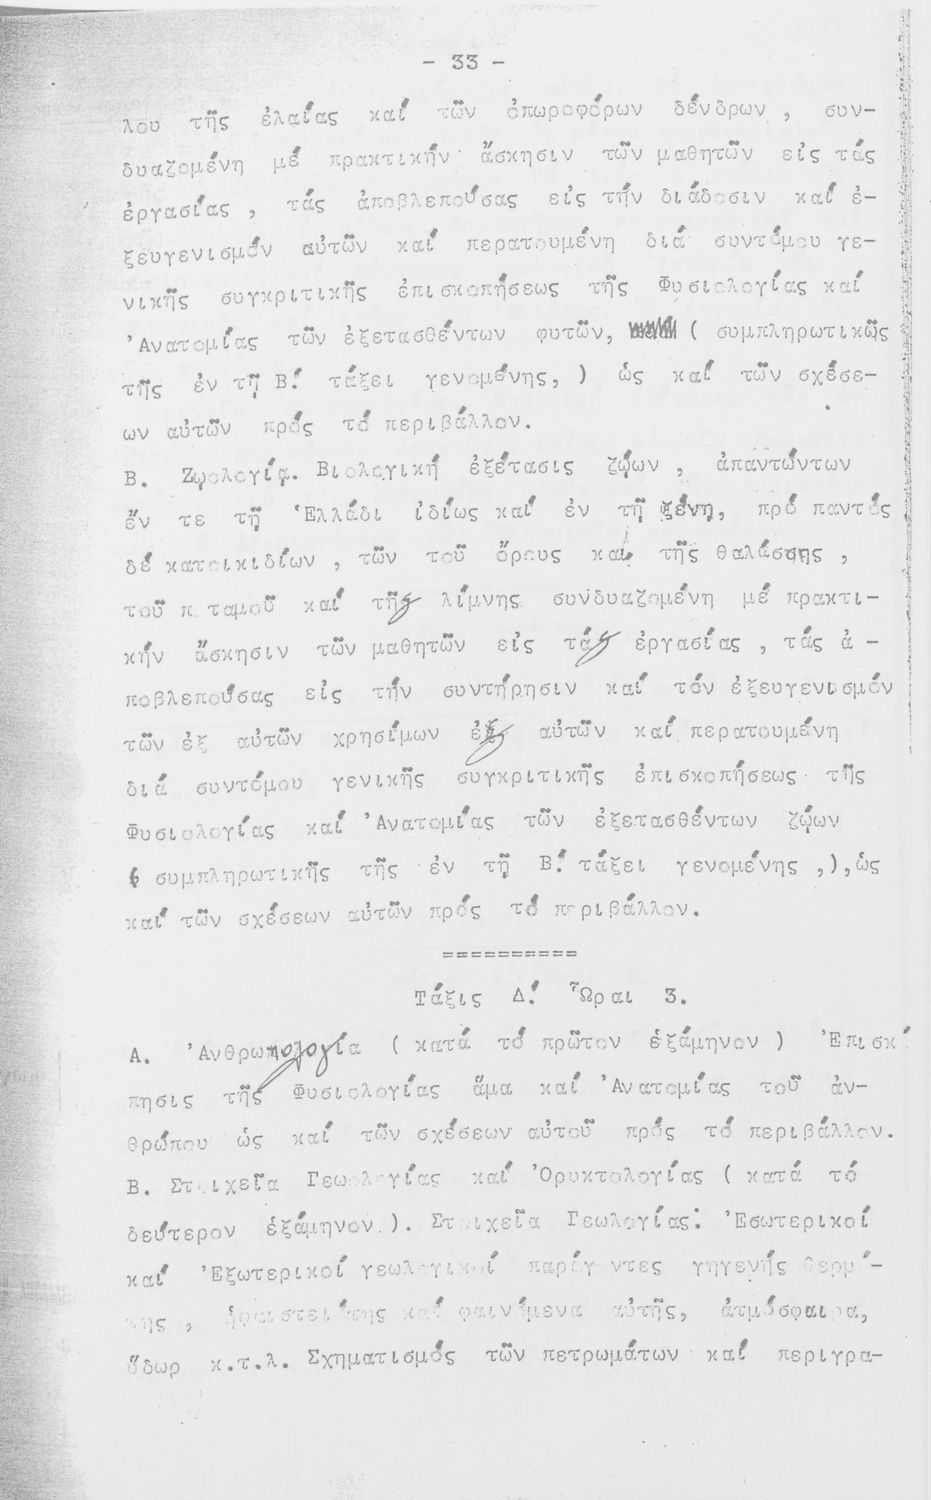 - 33 -
λου τῆς ἐλαίας καί τῶν ὀπωροφόρων δένδρων , συν-
δυαζομένη μέ πρακτικήν ἄσκησιν τῶν μαθητῶν εἰς τάς
ἐργασίας , τάς ἀποβλεπούσας εἰς τήν διάδοσιν καί ἐ-
ξευγενισμόν αὐτῶν καί περατουμένη διά συντόμου γε-
νικῆς συγκριτικῆς ἐπισκοπήσεως τῆς Φυσιολογίας καί
'Ανατομίας τῶν ἐξετασθέντων φυτῶν, ( συμπληρωτικῶς
τῆς ἐν τῇ Β! τάξει γενομένης, ) ὡς καί τῶν σχέσε-
ων αὐτῶν πρός τό περιβάλλον.
Β. Ζῳολογία. Βιολογική ἐξέτασις ζῴων , ἀπαντώντων
ἔν τε τῇ Ἑλλάδι ἰδίως καί ἐν τῇ ξένῃ, πρό παντός
δέ κατοικιδίων , τῶν τοῦ ὄρους καί τῆς θαλάσσης ,
τοῦ ποταμοῦ καί τῆς λίμνης συνδυαζομένη μέ πρακτι-
κήν ἄσκησιν τῶν μαθητῶν εἰς τάς ἐργασίας , τάς ἀ -
ποβλεπούσας εἰς τήν συντήρησιν καί τόν ἐξευγενισμόν
τῶν ἐξ αὐτῶν χρησίμων ἐξ αὐτῶν καί περατουμένη
διά συντόμου γενικῆς συγκριτικῆς ἐπισκοπήσεως τῆς
Φυσιολογίας καί 'Ανατομίας τῶν ἐξετασθέντων ζῴων
( συμπληρωτικῆς τῆς ἐν τῇ Β! τάξει γενομένης ,),ὡς
καί τῶν σχέσεων αὐτῶν πρός τό περιβάλλον.
==========
Τάξις Δ! Ὧραι 3.
Α. 'Ανθρωπολογία ( κατά τό πρῶτον ἑξάμηνον ) 'Επισκ
πησις τῆς Φυσιολογίας ἅμα καί 'Ανατομίας τοῦ ἀν-
θρώπου ὡς καί τῶν σχέσεων αὐτοῦ πρός τό περιβάλλον.
Β. Στοιχεῖα Γεωολογίας καί 'Ορυκτολογίας ( κατά τό
δεύτερον ἑξάμηνον ). Στοιχεῖα Γεωλογίας: 'Εσωτερικοί
καί 'Εξωτερικοί γεωλογικοί παράγοντες γηγενής θερμό-
της , ἡφαιστειότης καί φαινόμενα αὐτῆς, ἀτμόσφαιρα,
ὕδωρ κ.τ.λ. Σχηματισμός τῶν πετρωμάτων καί περιγρα-